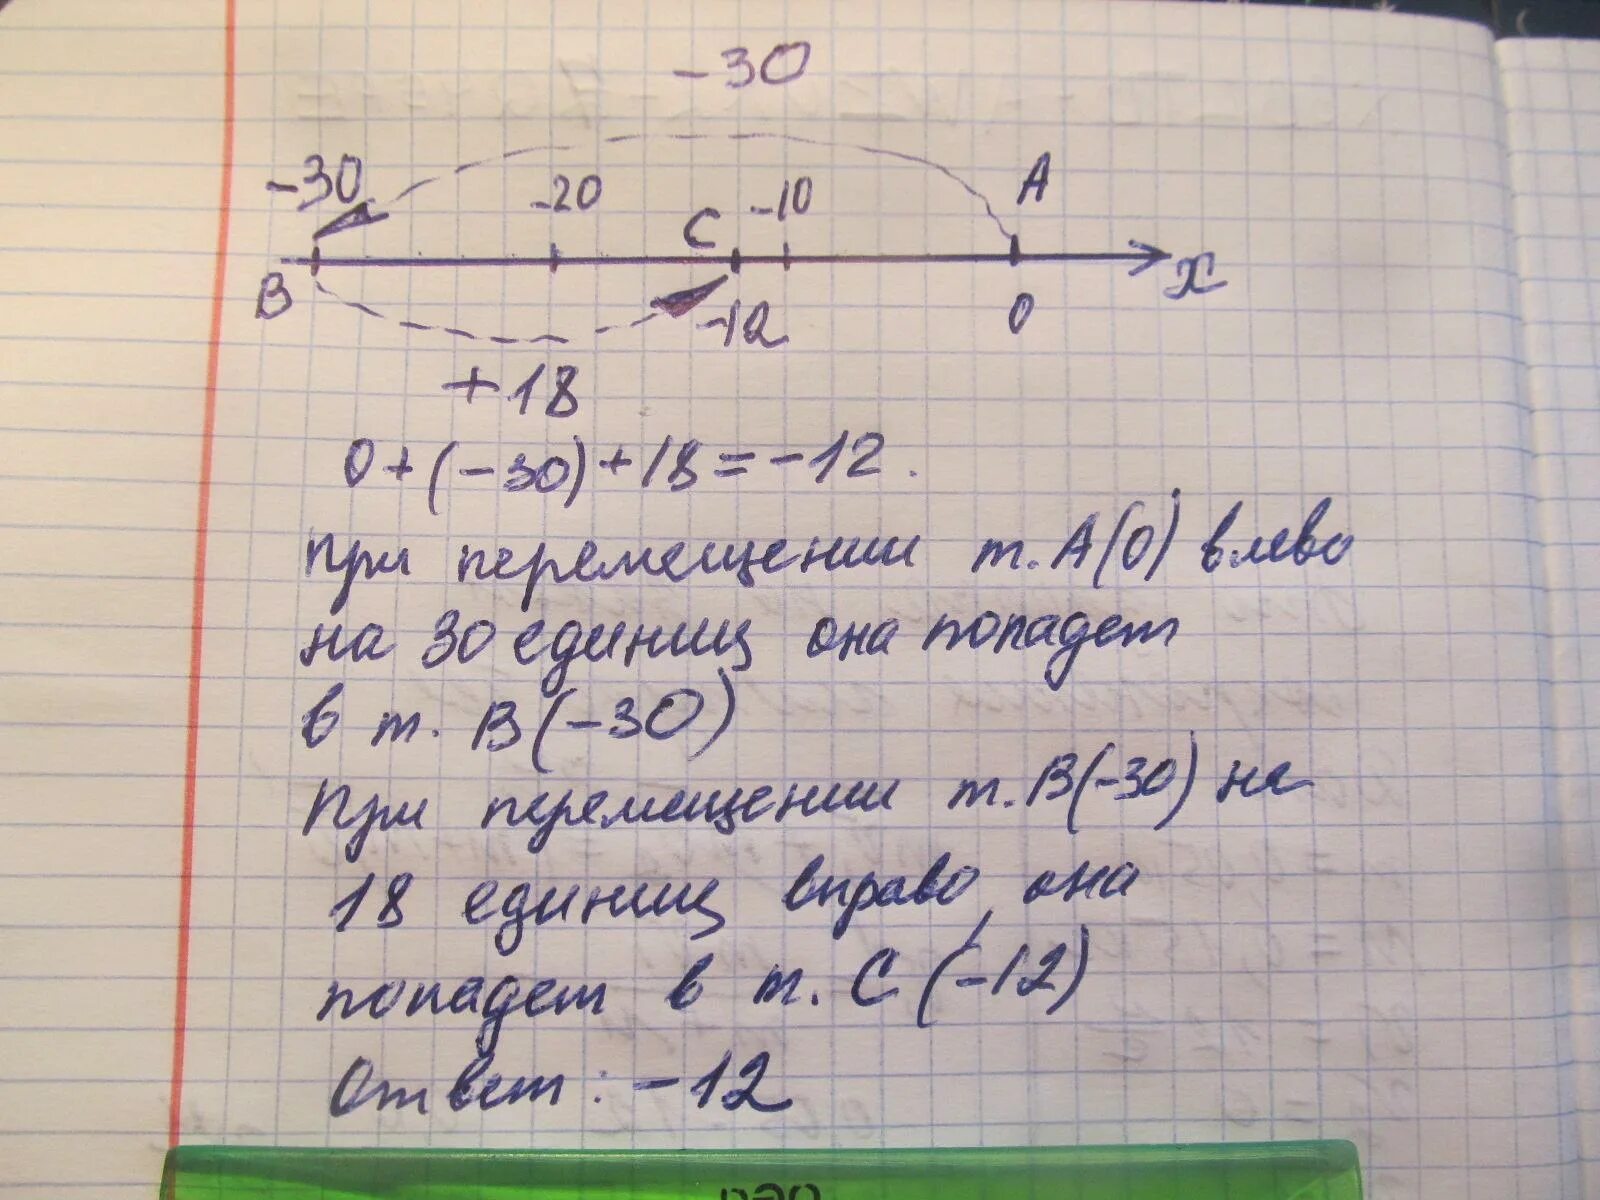 -30
-30 -20 C -10 A
B -12 0 x
+18
0+(-30)+18=-12.
При перемещении т. А(0) влево
на 30 единиц она попадет
в т. В(-30)
При перемещении т. В(-30) на
18 единиц вправо, она
попадет в т. С(-12)
Ответ: -12